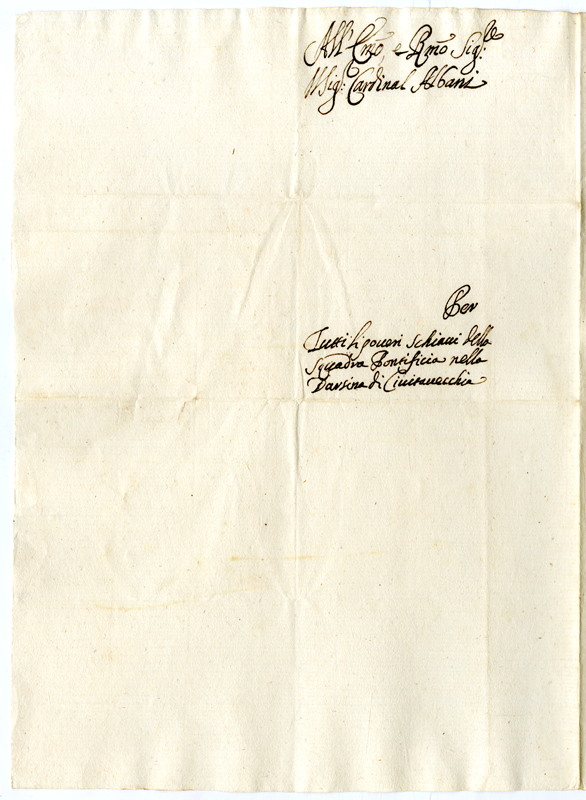 All' Emõ, e Rmõ Sig:re
Il Sig: Cardinal Albani
Per
Tutti li poueri schiaui della
Squadra Pontificia nella
Darsina di Ciuitauecchia